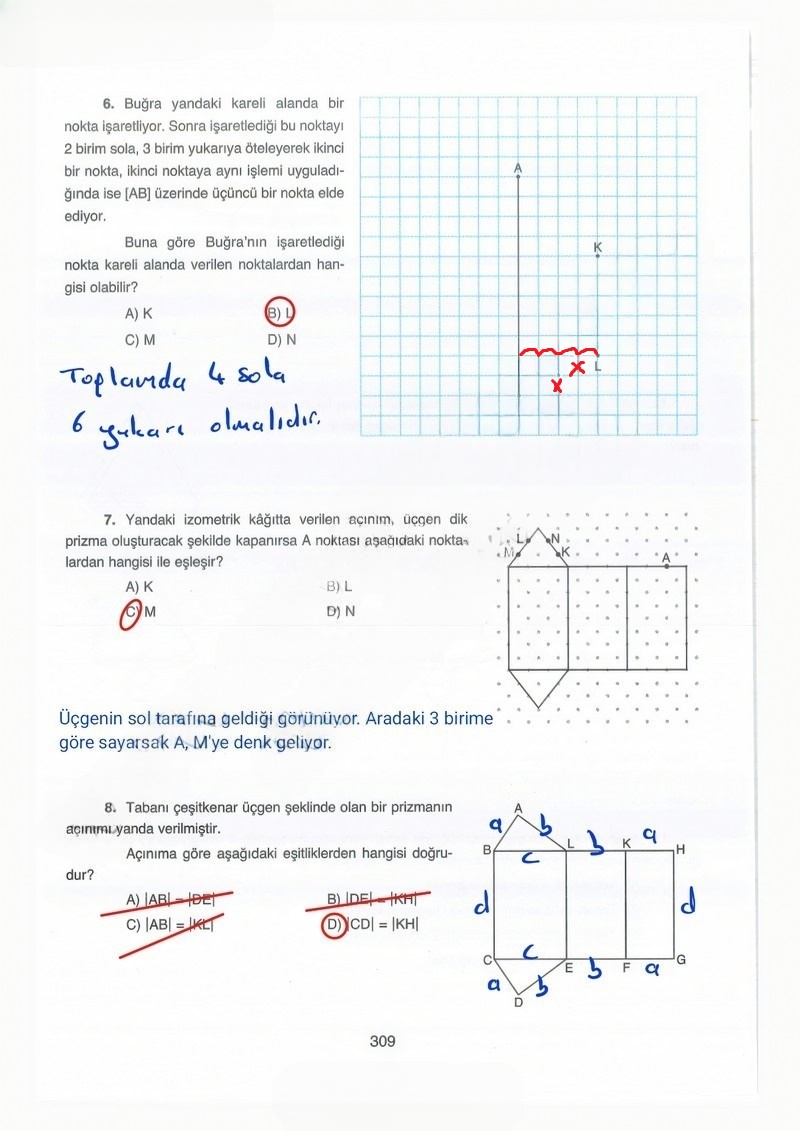 6. Buğra yandaki kareli alanda bir
nokta işaretliyor. Sonra işaretlediği bu noktayı
2 birim sola, 3 birim yukarıya öteleyerek ikinci
bir nokta, ikinci noktaya aynı işlemi uyguladı-
ğında ise [AB] üzerinde üçüncü bir nokta elde
ediyor.
Buna göre Buğra'nın işaretlediği
nokta kareli alanda verilen noktalardan han-
gisi olabilir?
A) K
B) L
C) M
D) N
A
K
L
x
x
Toplamda 4 sola
6 yukarı olmalıdır.
7. Yandaki izometrik kâğıtta verilen açınım, üçgen dik
prizma oluşturacak şekilde kapanırsa A noktası aşağıdaki nokta-
lardan hangisi ile eşleşir?
A) K
B) L
C) M
D) N
L
N
M
K
A
Üçgenin sol tarafına geldiği görünüyor. Aradaki 3 birime
göre sayarsak A, M'ye denk geliyor.
8. Tabanı çeşitkenar üçgen şeklinde olan bir prizmanın
açınımı yanda verilmiştir.
Açınıma göre aşağıdaki eşitliklerden hangisi doğru-
dur?
A) |AB| = |DE|
B) |DE| = |KH|
C) |AB| = |KL|
D) |CD| = |KH|
A
a
b
B
L
b
K
a
H
c
d
d
C
c
E
b
F
a
G
a
b
D
309